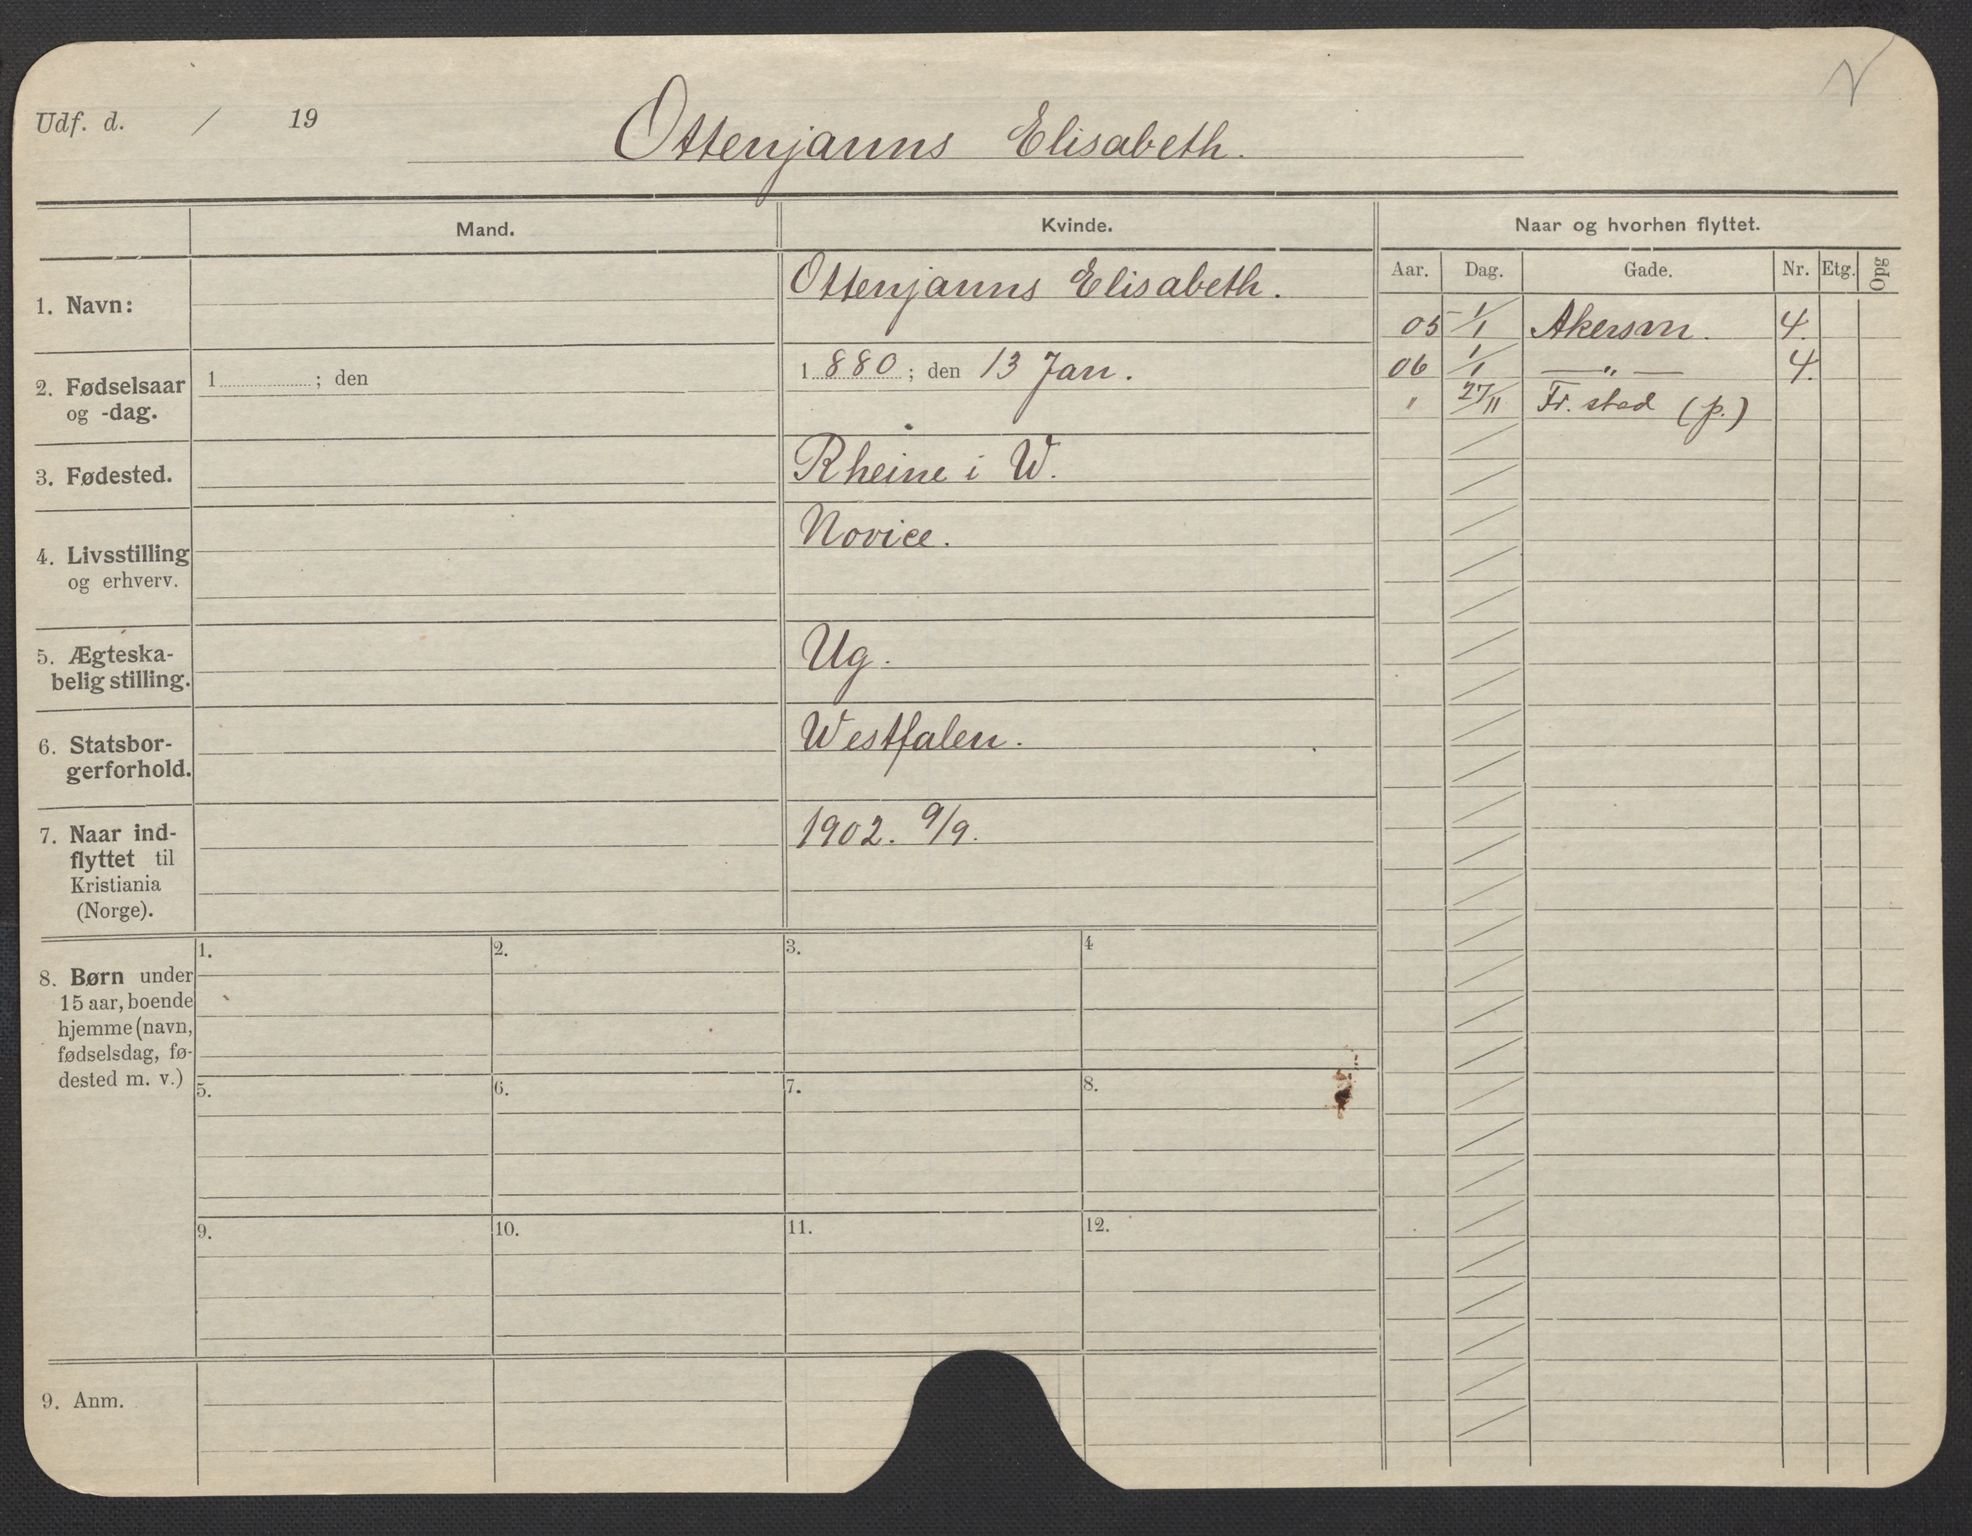 Udf. d. / 19
Ottenjanns Elisabeth.
Mand.
Kvinde.
Naar og hvorhen flyttet.
Aar. Dag. Gade. Nr. Etg. Opg
1. Navn:
Ottenjanns Elisabeth.
05 1/1 Akersvn. 4.
06 1/1 — „ — 4.
" 27/11 Fr. stad (p.)
2. Fødselsaar
og -dag.
1 ; den
1 880 ; den 13 Jan.
3. Fødested.
Rheine i W.
4. Livsstilling
og erhverv.
Novice.
5. Ægteska-
belig stilling.
Ug.
6. Statsbor-
gerforhold.
Westfalen.
7. Naar ind-
flyttet til
Kristiania
(Norge).
1902. 9/9.
8. Børn under
15 aar, boende
hjemme (navn,
fødselsdag, fø-
dested m. v.)
1. 2. 3. 4
5. 6. 7. 8.
9. 10. 11. 12.
9. Anm.